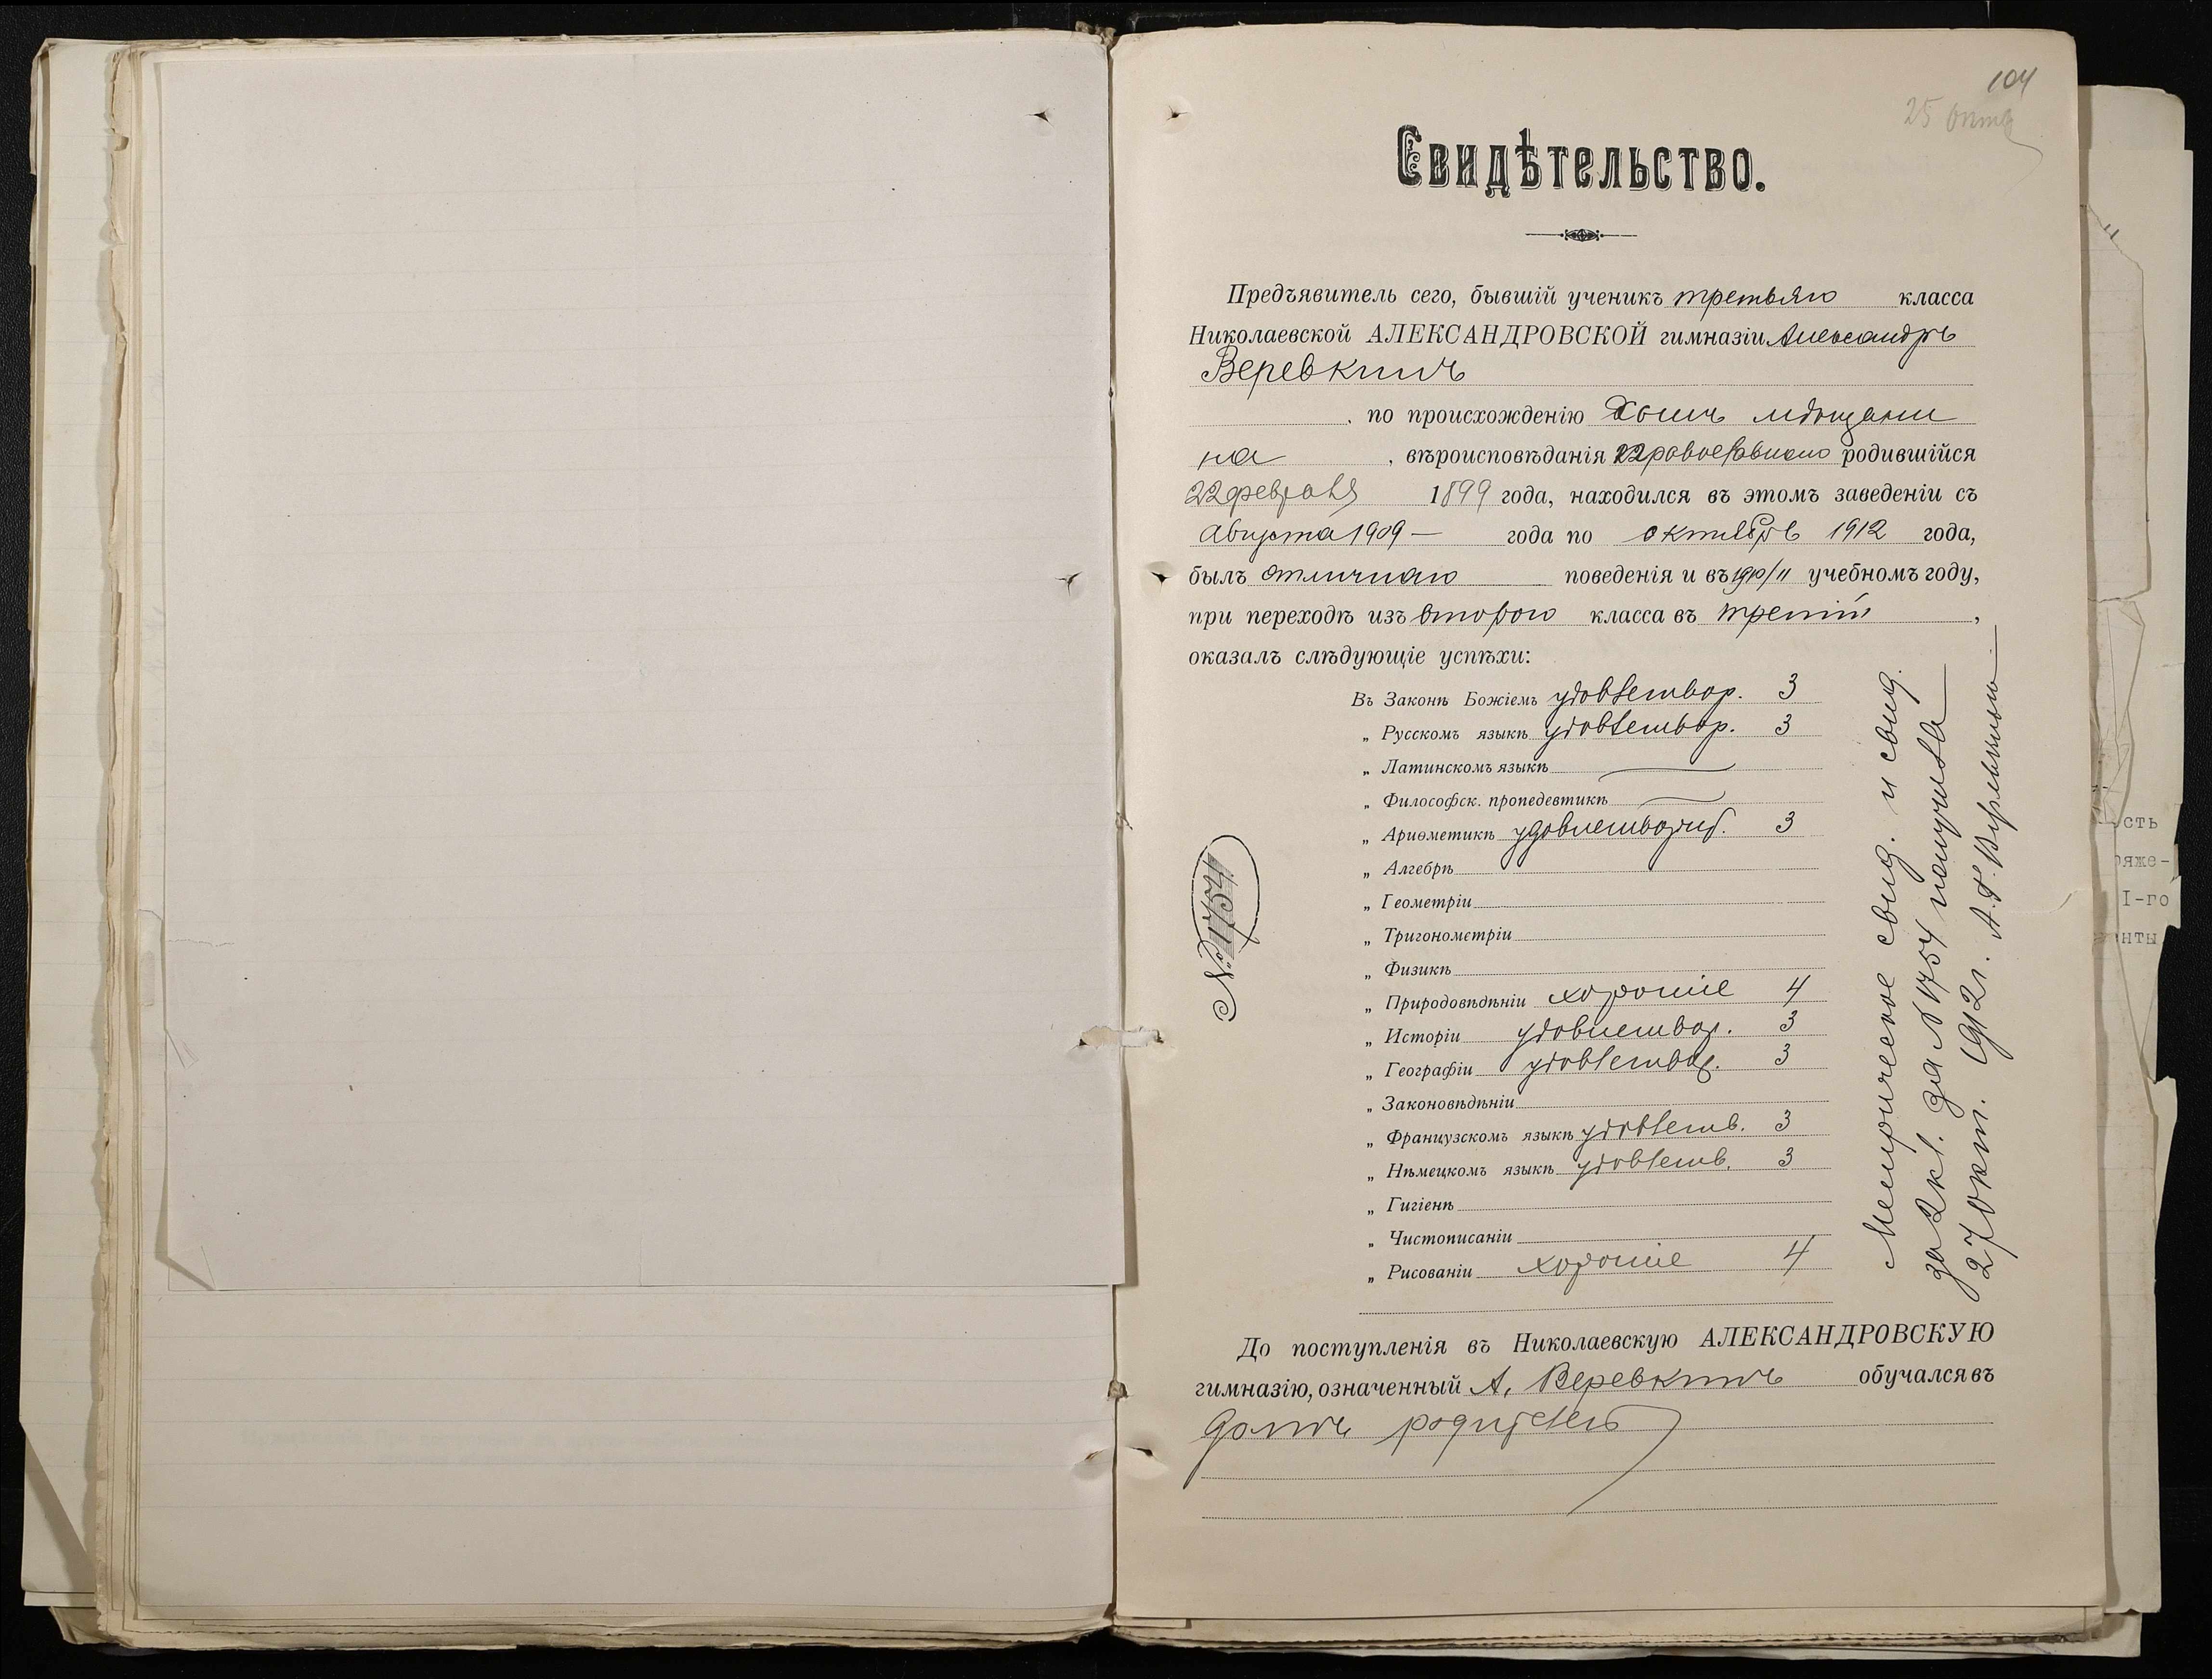 104
25 октяб
Свидѣтельство.
Предъявитель сего, бывшій ученикъ третьяго класса
Николаевской АЛЕКСАНДРОВСКОЙ гимназіи Александръ
Веревкинъ
, по происхожденію сынъ мѣщани
на , вѣроисповѣданія православнаго родившійся
22 февраля 1899 года, находился въ этомъ заведеніи съ
Августа 1909 — года по октябрь 1912 года,
былъ отличнаго поведенія и въ 1910/11 учебномъ году,
при переходѣ изъ второго класса въ третій ,
оказалъ слѣдующіе успѣхи:
Въ Законѣ Божіемъ удовлетвор. 3
„ Русскомъ языкѣ удовлетвор. 3
„ Латинскомъ языкѣ —
„ Философск. пропедевтикѣ —
„ Ариѳметикѣ удовлетворит. 3
„ Алгебрѣ
„ Геометріи
„ Тригонометріи
„ Физикѣ
„ Природовѣдѣніи хорошіе 4
„ Исторіи удовлетвор. 3
„ Географіи удовлетвор. 3
„ Законовѣдѣніи
„ Французскомъ языкѣ удовлетв. 3
„ Нѣмецкомъ языкѣ удовлетв. 3
„ Гигіенѣ
„ Чистописаніи
„ Рисованіи хорошіе 4
До поступленія въ Николаевскую АЛЕКСАНДРОВСКУЮ
гимназію, означенный А. Веревкинъ обучался въ
домѣ родителей
№ 1754
Метрическое свид. и свид.
за 2 кл. за № 1754 получила
27 Окт. 1912 г. А. Веревкина
ость
ряже-
I-го
нты